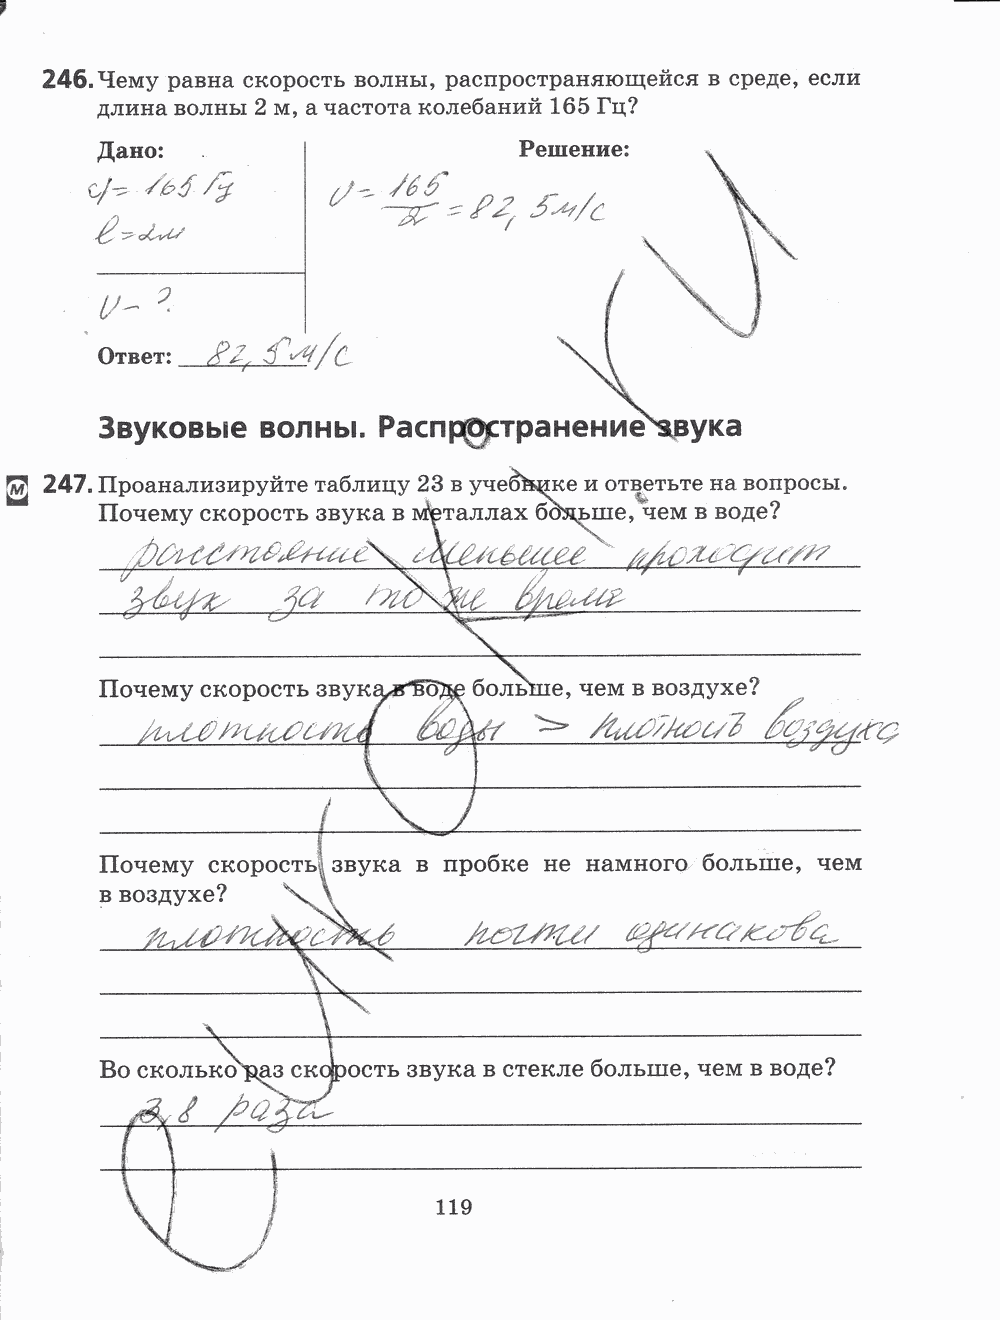 246. Чему равна скорость волны, распространяющейся в среде, если
длина волны 2 м, а частота колебаний 165 Гц?
Дано:
Решение:
υ = 165/2 = 82,5 м/с
= 165 Гц
l = 2м
υ - ?
Ответ: 82,5 м/с
Звуковые волны. Распространение звука
М 247. Проанализируйте таблицу 23 в учебнике и ответьте на вопросы.
Почему скорость звука в металлах больше, чем в воде?
расстояние меньшее проходит
звук за то же время
Почему скорость звука в воде больше, чем в воздухе?
плотность воды > плотность воздуха
Почему скорость звука в пробке не намного больше, чем
в воздухе?
плотность почти одинакова
Во сколько раз скорость звука в стекле больше, чем в воде?
3,8 раза
119